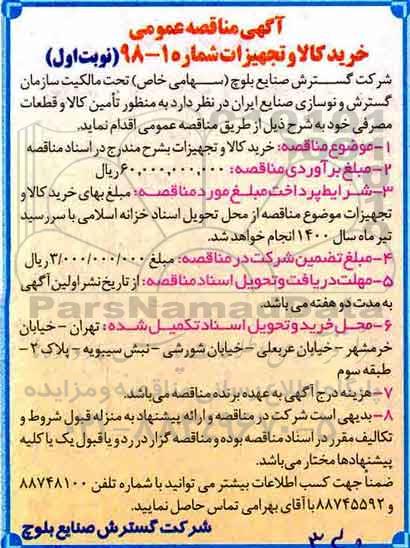 آگهی مناقصه عمومی
خرید کالا و تجهیزات شماره ۱-۹۸ (نوبت اول)
شرکت گسترش صنایع بلوچ (سهامی خاص) تحت مالکیت سازمان
گسترش و نوسازی صنایع ایران در نظر دارد به منظور تأمین کالا و قطعات
مصرفی خود به شرح ذیل از طریق مناقصه عمومی اقدام نماید.
۱-موضوع مناقصه: خرید کالا و تجهیزات بشرح مندرج در اسناد مناقصه
۲-مبلغ برآوردی مناقصه: ۶۰,۰۰۰,۰۰۰,۰۰۰ ریال
۳-شرایط پرداخت مبلغ مورد مناقصه: مبلغ بهای خرید کالا و
تجهیزات موضوع مناقصه از محل تحویل اسناد خزانه اسلامی با سررسید
تیر ماه سال ۱۴۰۰ انجام خواهد شد.
۴-مبلغ تضمین شرکت در مناقصه: مبلغ ۳/۰۰۰/۰۰۰/۰۰۰ ریال
۵-مهلت دریافت و تحویل اسناد مناقصه: از تاریخ نشر اولین آگهی
به مدت دو هفته می باشد.
۶-محل خرید و تحویل اسناد تکمیل شده: تهران - خیابان
خرمشهر - خیابان عربعلی - خیابان شورشی - نبش سیبویه - پلاک ۲ -
طبقه سوم
۷-هزینه درج آگهی به عهده برنده مناقصه می‌باشد.
۸-بدیهی است شرکت در مناقصه و ارائه پیشنهاد به منزله قبول شروط و
تکالیف مقرر در اسناد مناقصه بوده و مناقصه گزار در رد و یا قبول یک یا کلیه
پیشنهادها مختار می‌باشد.
ضمنا جهت کسب اطلاعات بیشتر می توانید با شماره تلفن ۸۸۷۴۸۱۰۰
و ۸۸۷۴۵۵۹۲ با آقای بهرامی تماس حاصل نمایید.
شرکت گسترش صنایع بلوچ
ParsNamadData